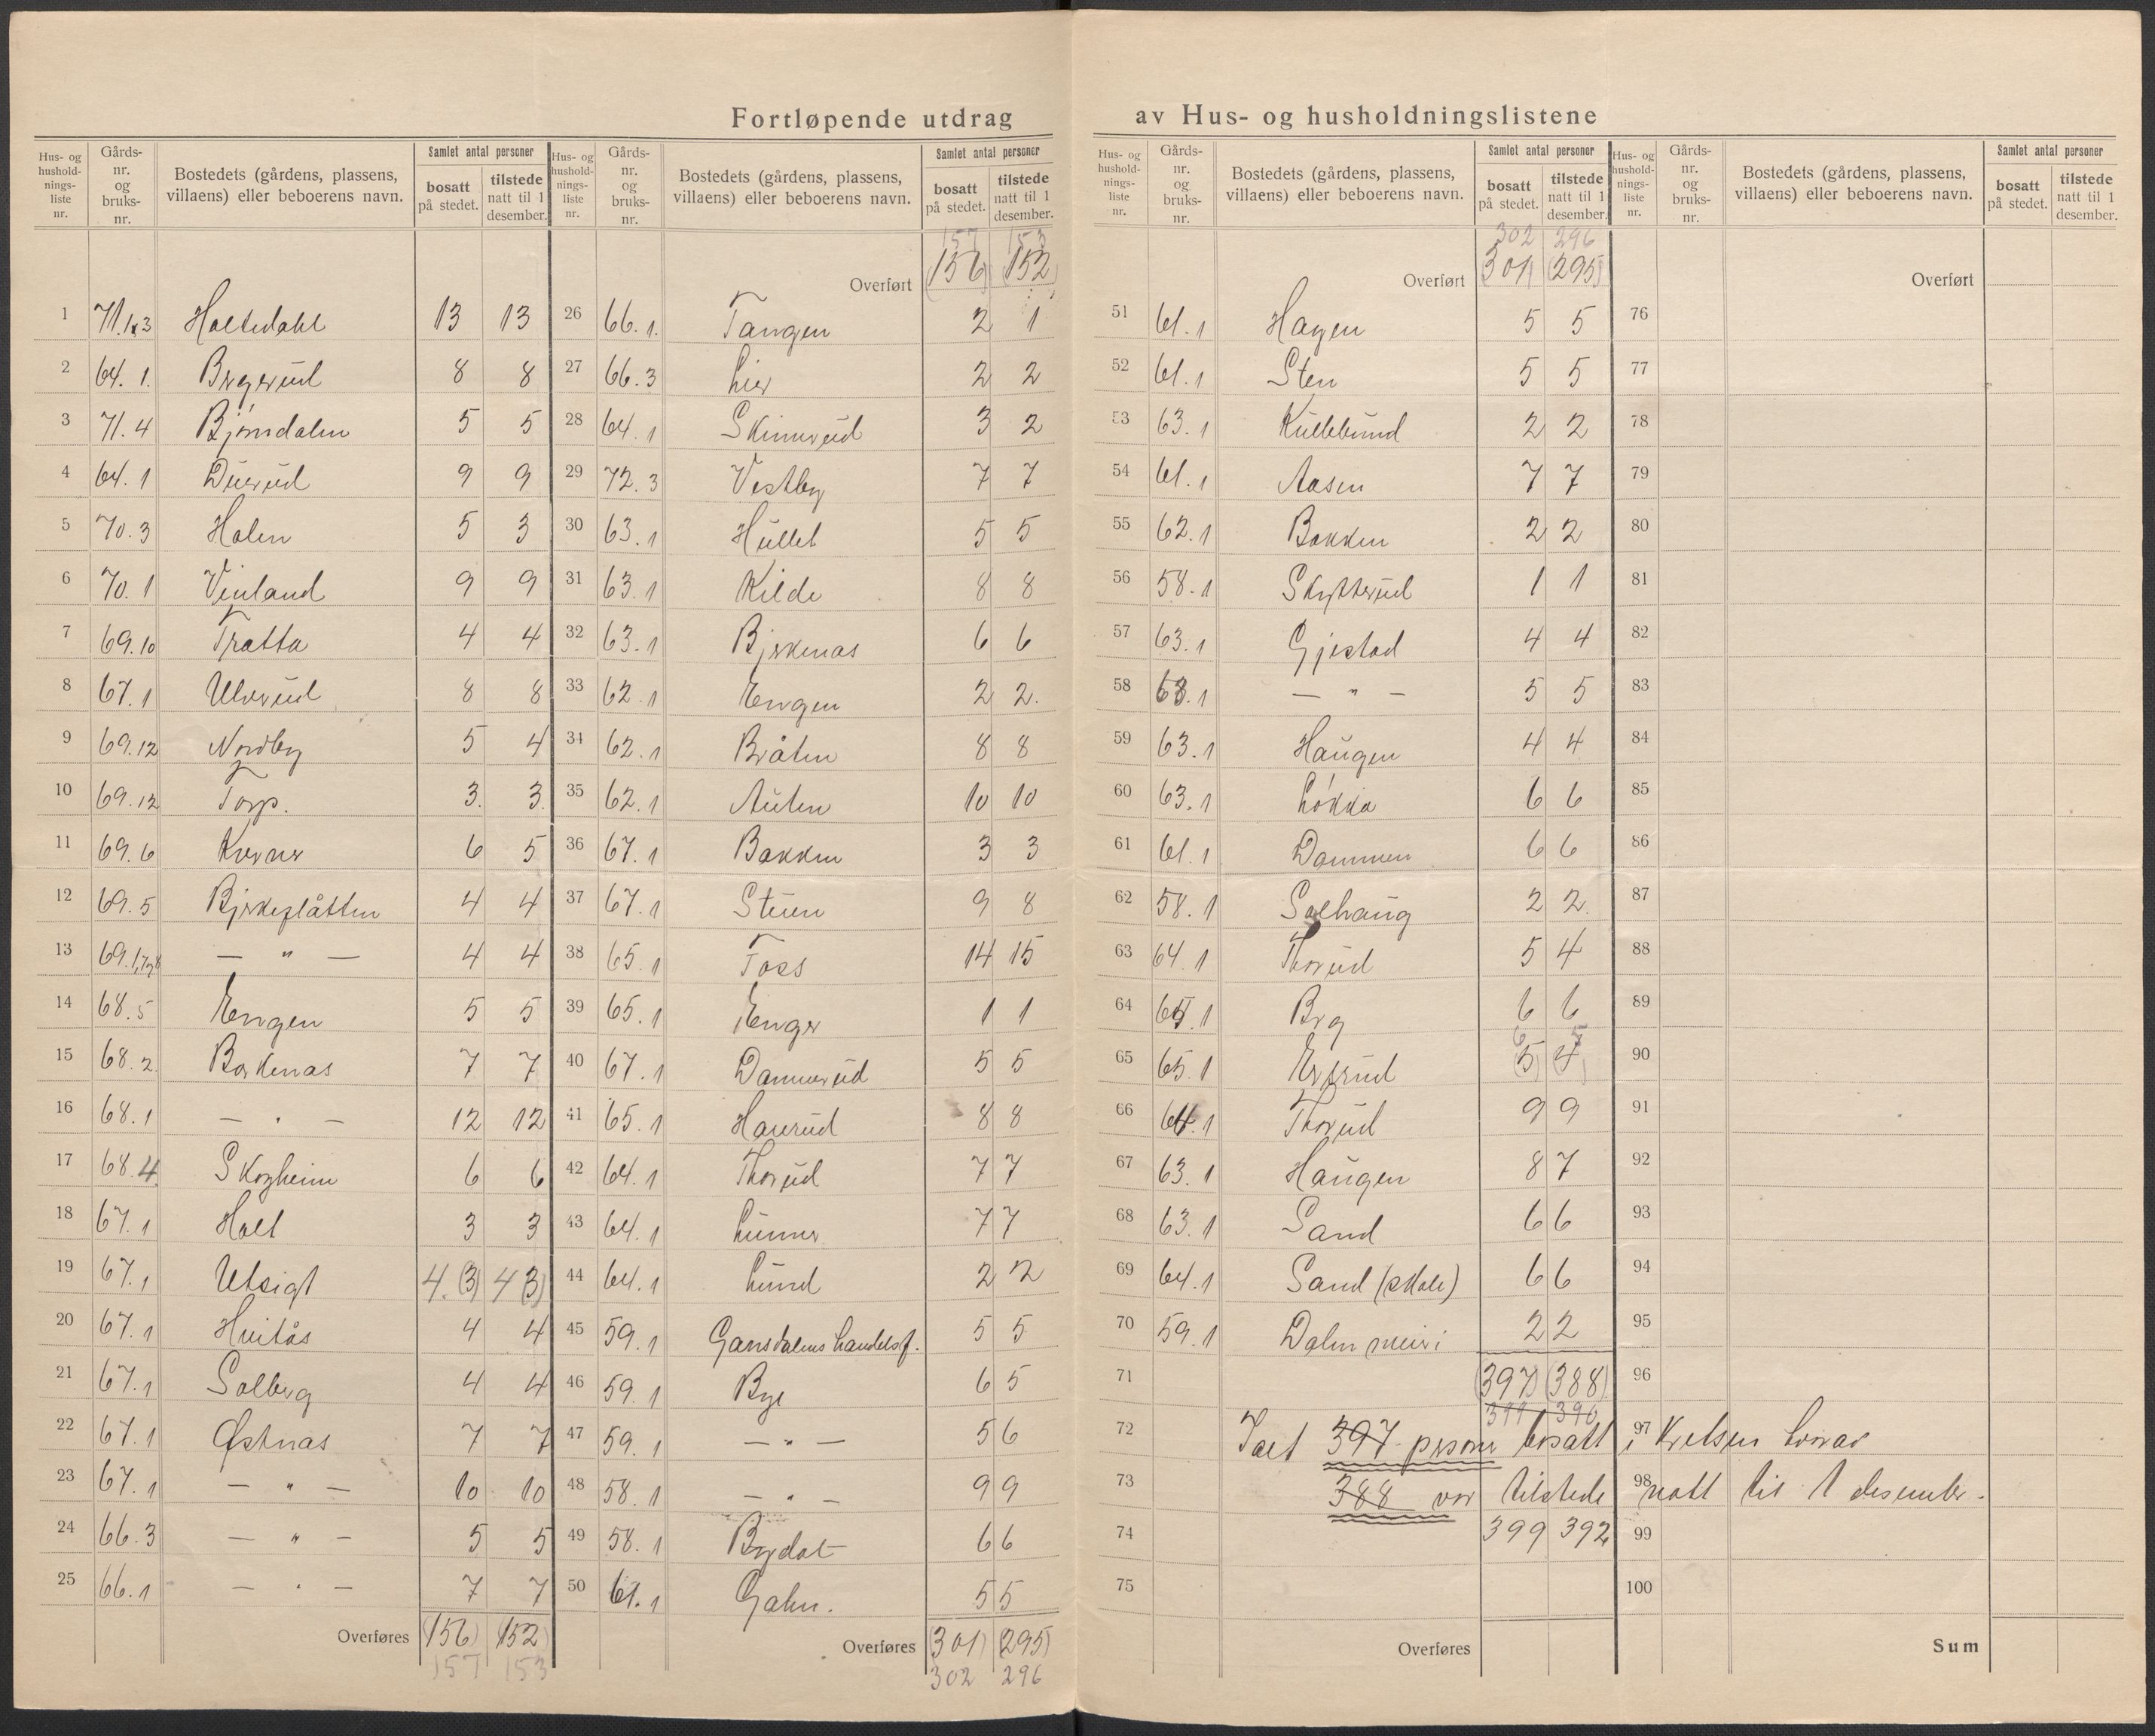 Fortløpende utdrag av Hus- og husholdningslistene
Hus- og hushold-nings-liste nr. Gårds-nr. og bruks-nr. Bostedets (gårdens, plassens, villaens) eller beboerens navn. Samlet antal personer bosatt på stedet. tilstede natt til 1 desember.
Hus- og hushold-nings-liste nr. Gårds-nr. og bruks-nr. Bostedets (gårdens, plassens, villaens) eller beboerens navn. Samlet antal personer bosatt på stedet. tilstede natt til 1 desember.
Hus- og hushold-nings-liste nr. Gårds-nr. og bruks-nr. Bostedets (gårdens, plassens, villaens) eller beboerens navn. Samlet antal personer bosatt på stedet. tilstede natt til 1 desember.
Hus- og hushold-nings-liste nr. Gårds-nr. og bruks-nr. Bostedets (gårdens, plassens, villaens) eller beboerens navn. Samlet antal personer bosatt på stedet. tilstede natt til 1 desember.
1 71.1x3 Holtedahl 13 13
2 64.1. Bergerud 8 8
3 71.4 Bjørndalen 5 5
4 64.1 Duerud 9 9
5 70.3 Holen 5 3
6 70.1 Vinland 9 9
7 69.10 Tratta 4 4
8 67.1 Ulverud 8 8
9 69.12 Nordby 5 4
10 69.12 Torp. 3. 3.
11 69.6 Kverner 6 5
12 69.5 Bjerkeslåtten 4 4
13 69.1,7,8 — " — 4 4
14 68.5 Engen 5 5
15 68.2 Borkenas 7 7
16 68.1 — " — 12 12
17 68.4. Skogheim 6 6
18 67.1 Holt 3 3
19 67.1 Utsigt 4.(3) 4(3)
20 67.1 Hvitås 4 4
21 67.1 Solberg 4 4
22 67.1 Østnas 7 7
23 67.1 — " — 10 10
24 66.3 — " — 5 5
25 66.1 — " — 7 7
Overføres (156) (152)
157 153
157 153
Overført (156) (152)
26 66.1. Tangen 2 1
27 66.3 Lier 2 2
28 64.1 Skinnerud 3 2
29 72.3 Vestby 7 7
30 63.1 Hullet 5 5
31 63.1 Kilde 8 8
32 63.1 Bjerkenas 6 6
33 62.1 Engen 2 2.
34 62.1 Bråten 8 8
35 62.1 Auten 10 10
36 67.1 Bakken 3 3
37 67.1 Stuen 9 8
38 65.1 Foss 14 15
39 65.1 Enger 1 1
40 67.1 Dammerud 5 5
41 65.1 Haverud 8 8
42 64.1 Thorud 7 7
43 64.1 Lunner 7 7
44 64.1 Lund 2 2
45 59.1 Gansdalens handelsf. 5 5
46 59.1 Bye 6 5
47 59.1 — " — 5 6
48 58.1 — " — 9 9
49 58.1 Brydal 6 6
50 61.1 Galen. 5 5
Overføres (301) (295)
302 296
302 296
Overført (301) (295)
51 61.1 Hagen 5 5
52 61.1 Sten 5 5
53 63.1 Kullebund 2 2
54 61.1 Aasen 7 7
55 62.1 Bakken 2 2
56 58.1 Skytterud 1 1
57 63.1 Gjestad 4 4
58 63.1 — " — 5 5
59 63.1 Haugen 4 4
60 63.1 Løkka 6 6
61 61.1 Dammen 6 6
62 58.1 Solhaug 2 2.
63 64.1 Thorud 5 4
64 65.1 Berg 6 6
6 5
65 65.1 (5) (4)
66 64.1 Thorud 9 9
67 63.1 Haugen 8 7
68 63.1 Sand 6 6
69 64.1 Sand (skole) 6 6
70 59.1 Dalen meieri 2 2
71 (397) (388)
399 390
72 Ialt 397 personer bosatt i Kretsen hvorav
73 388 var tilstede natt til 1 desember.
74 399 392
75
Overføres
Overført
76
77
78
79
80
81
82
83
84
85
86
87
88
89
90
91
92
93
94
95
96
97
98
99
100
Sum